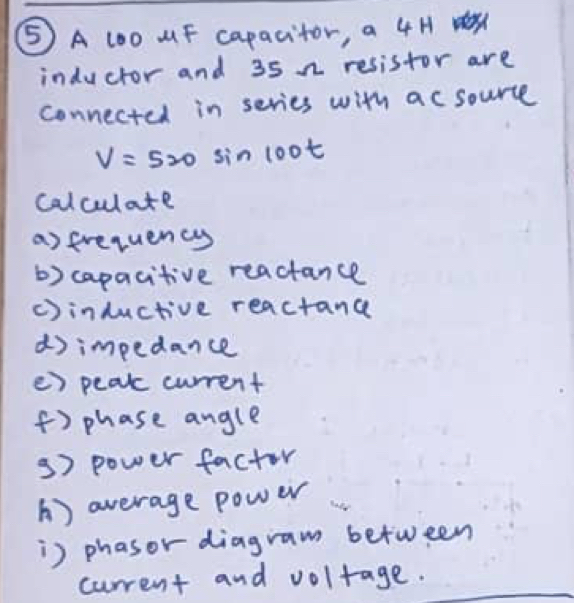 ⑤ A 100 μF capacitor, a 4H
inductor and 35 Ω resistor are
connected in series with ac source
V = 520 sin 100t
Calculate
a) frequency
b) capacitive reactance
c) inductive reactance
d) impedance
e) peak current
f) phase angle
g) power factor
h) average power
i) phasor diagram between
current and voltage.